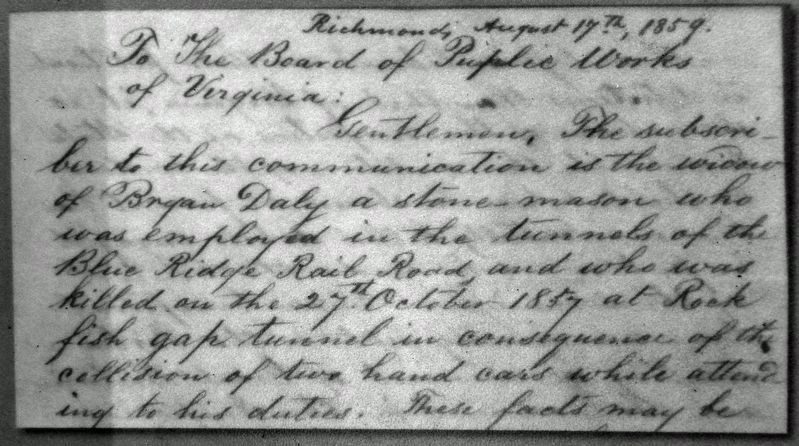 Richmond, August 17th, 1859.
To The Board of Public Works
of Virginia:
Gentlemen, The subscri-
ber to this communication is the widow
of Bryan Daly a stone mason who
was employed in the tunnels of the
Blue Ridge Rail Road, and who was
killed on the 27th October 1857 at Rock
fish gap tunnel in consequence of the
collision of two hand cars while attend
ing to his duties. These facts may be